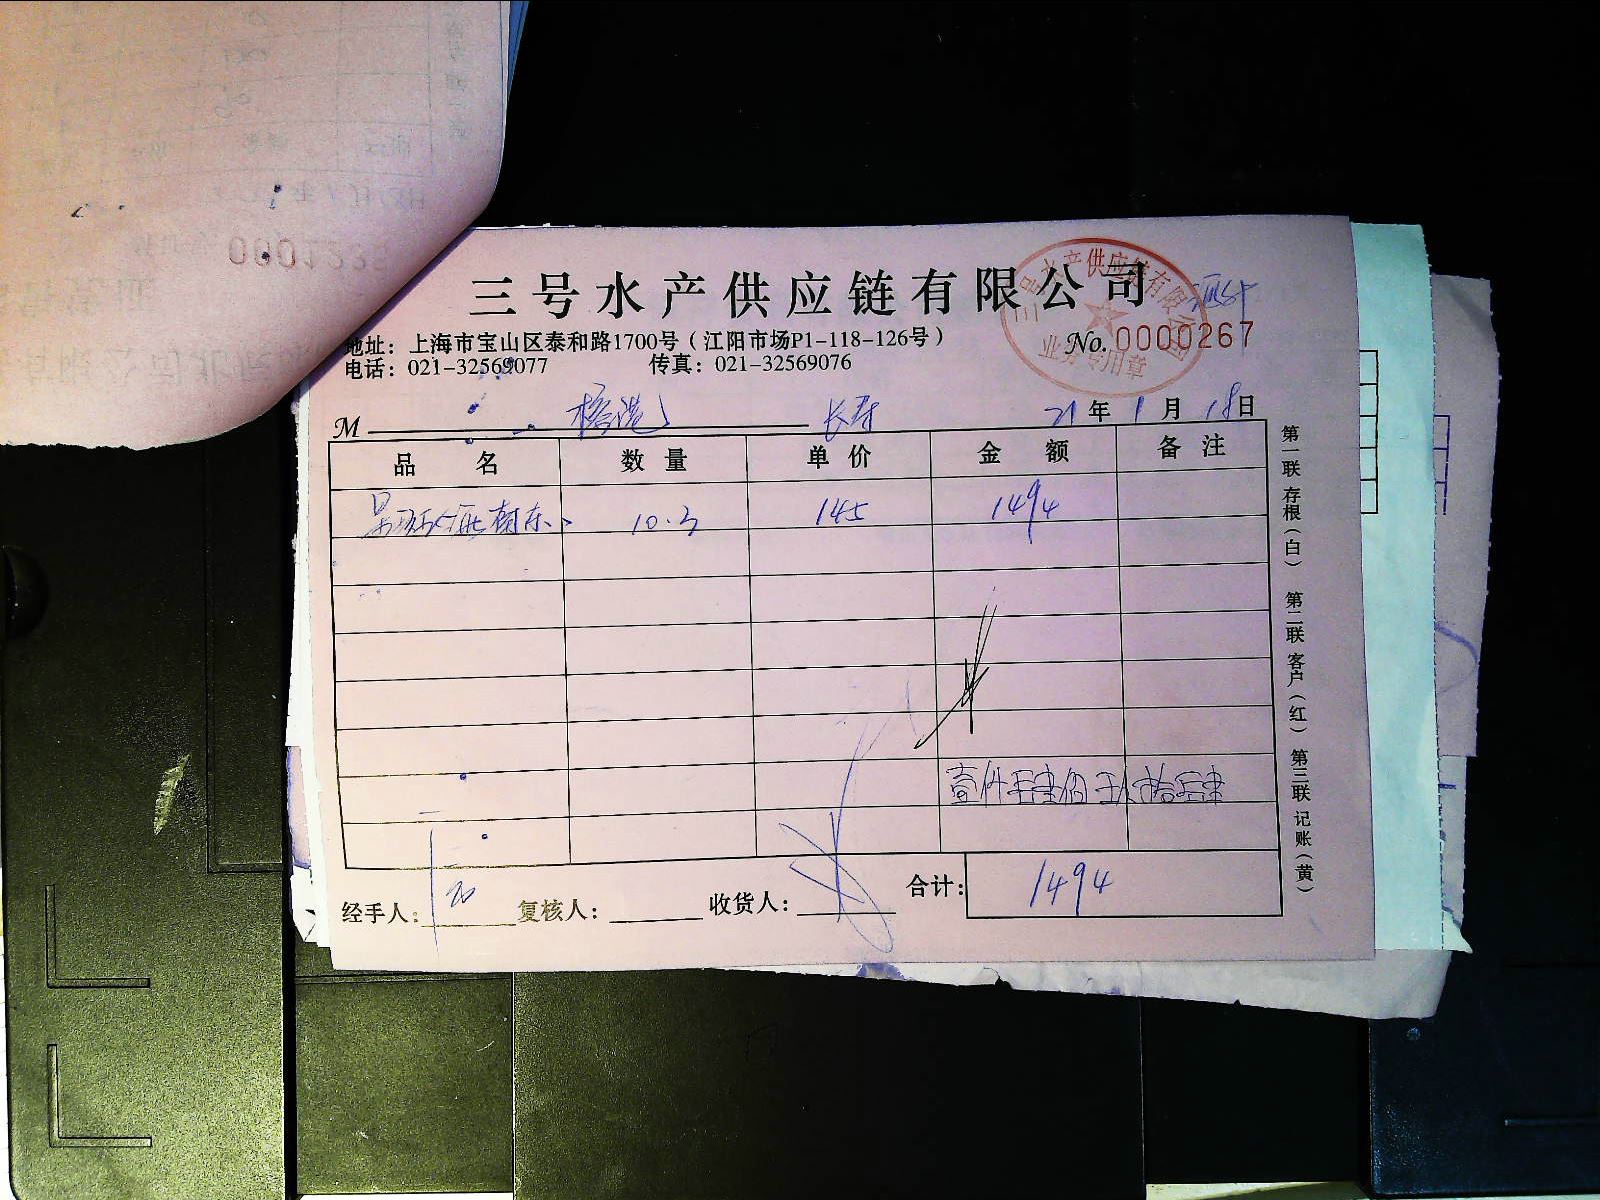 0001223
三号水产供应链有限公司
三号水产供应链有限公司
业务专用章
地址：上海市宝山区泰和路1700号（江阳市场P1-118-126号）
No. 0000267
电话：021-32569077 传真：021-32569076
M 长寿 21年1月18日
品名 数量 单价 金额 备注
10.3 145 1494
壹仟肆佰玖拾肆
合计： 1494
经手人： 复核人： 收货人：
第一联 存根（白） 第二联 客户（红） 第三联 记账（黄）